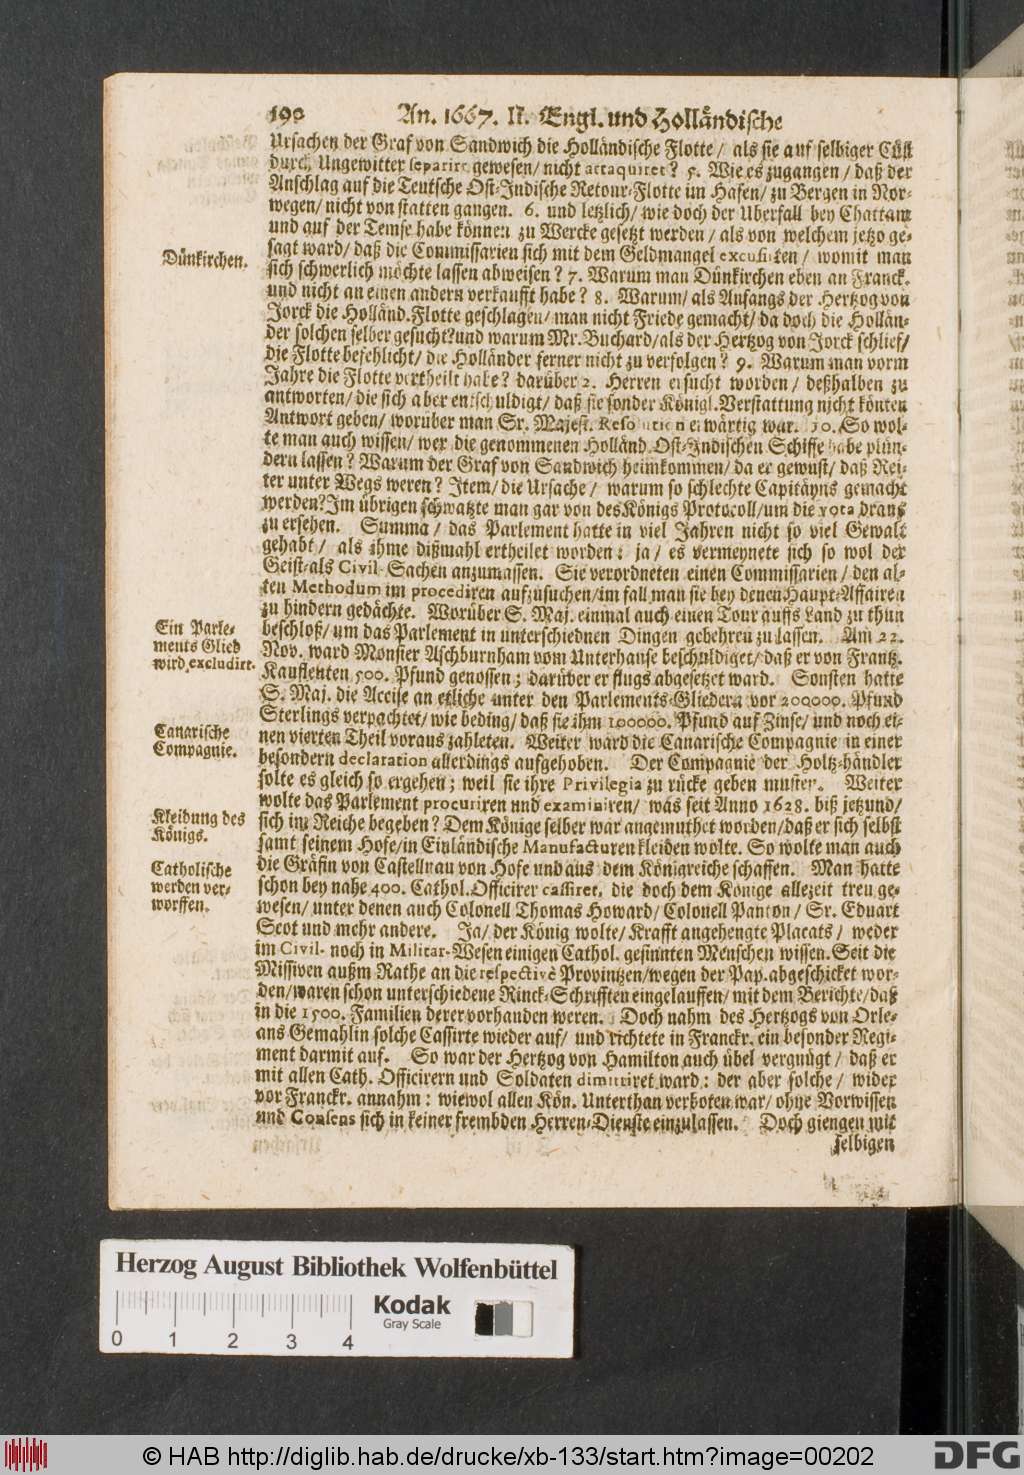 190 An. 1667. II. Engl. und Holländische
Ursachen der Graf von Sandwich die Holländische Flotte / als sie auf selbiger Cüst
durch Ungewitter separirt gewesen / nicht attaquiret? 5. Wie es zugangen / daß der
Anschlag auf die Teutsche Ost-Indische Retour-Flotte im Hafen / zu Bergen in Nor-
wegen / nicht von statten gangen. 6. und letzlich / wie doch der Uberfall bey Chattam
und auf der Temse habe können zu Wercke gesetzt werden / als von welchem jetzo ge-
Dünkirchen.
sagt ward / daß die Commissarien sich mit dem Geldmangel excusirten / womit man
sich schwerlich möchte lassen abweisen? 7. Warum man Dünkirchen eben an Franck.
und nicht an einen andern verkaufft habe? 8. Warum / als Anfangs der Hertzog von
Jorck die Holländ. Flotte geschlagen / man nicht Friede gemacht / da doch die Hollän-
der solchen selber gesucht? und warum Mr. Buchard / als der Hertzog von Jorck schlief /
die Flotte befehlicht / die Holländer ferner nicht zu verfolgen? 9. Warum man vorm
Jahre die Flotte vertheilt habe? darüber 2. Herren ersucht worden / deßhalben zu
antworten / die sich aber entschuldigt / daß sie sonder Königl. Verstattung nicht könten
Antwort geben / worüber man Sr. Majest. Resolution erwärtig war. 10. So wol-
te man auch wissen / wer die genommenen Holländ. Ost-Indischen Schiffe habe plün-
dern lassen? Warum der Graf von Sandwich heimkommen / da er gewust / daß Rei-
ter unter Wegs weren? Item / die Ursache / warum so schlechte Capitäyns gemacht
werden? Im übrigen schwatzte man gar von des Königs Protocoll / um die vota drauß
zu ersehen. Summa / das Parlement hatte in viel Jahren nicht so viel Gewalt
gehabt / als ihme dißmahl ertheilet worden: ja / es vermeynete sich so wol der
Geist- als Civil-Sachen anzumassen. Sie verordneten einen Commissarien / den al-
ten Methodum im procediren aufzusuchen / im fall man sie bey denen Haupt-Affairen
zu hindern gedächte. Worüber S. Maj. einmal auch einen Tour auffs Land zu thun
Ein Parle-
ments Glied
wird excludirt.
beschloß / um das Parlement in unterschiednen Dingen gebehren zu lassen. Am 22.
Nov. ward Monsier Aschburnham vom Unterhause beschuldiget / daß er von Frantz.
Kauffenten 500. Pfund genossen; darüber er flugs abgesetzet ward. Sonsten hatte
S. Maj. die Accise an etliche unter den Parlements-Gliedern vor 200000. Pfund
Sterlings verpachtet / wie beding / daß sie ihm 100000. Pfund auf Zinse / und noch ei-
Canarische
Compagnie.
nen vierten Theil voraus zahleten. Weiter ward die Canarische Compagnie in einer
besondern declaration allerdings aufgehoben. Der Compagnie der Holtz-händler
solte es gleich so ergehen; weil sie ihre Privilegia zu rücke geben musten. Weiter
wolte das Parlement procuriren und examiniren / was seit Anno 1628. biß jetzund /
Kleidung des
Königs.
sich im Reiche begeben? Dem Könige selber war angemuthet worden / daß er sich selbst
samt seinem Hofe / in Einländische Manufacturen kleiden wolte. So wolte man auch
Catholische
werden ver-
worffen.
die Gräfin von Castellnau von Hofe und aus dem Königreiche schaffen. Man hatte
schon bey nahe 400. Cathol. Officirer cassiret, die doch dem Könige allezeit treu ge-
wesen / unter denen auch Colonell Thomas Howard / Colonell Panton / Sr. Eduart
Scot und mehr andere. Ja / der König wolte / Krafft angehengte Placats / weder
im Civil- noch in Militar-Wesen einigen Cathol. gesinnten Menschen wissen. Seit die
Missiven außm Rathe an die respectivè Provintzen / wegen der Pap. abgeschicket wor-
den / waren schon unterschiedene Rinck-Schrifften eingelauffen / mit dem Berichte / daß
in die 1500. Familien derer vorhanden weren. Doch nahm des Hertzogs von Orle-
ans Gemahlin solche Cassirte wieder auf / und richtete in Franckr. ein besonder Regi-
ment darmit auf. So war der Hertzog von Hamilton auch übel vergnügt / daß er
mit allen Cath. Officirern und Soldaten dimittiret ward: der aber solche / wider
vor Franckr. annahm: wiewol allen Kön. Unterthan verboten war / ohne Vorwissen
und Consens sich in keiner frembden Herren-Dienste einzulassen. Doch giengen mit
selbigen
Herzog August Bibliothek Wolfenbüttel
Kodak
Gray Scale
0 1 2 3 4
© HAB http://diglib.hab.de/drucke/xb-133/start.htm?image=00202
DFG